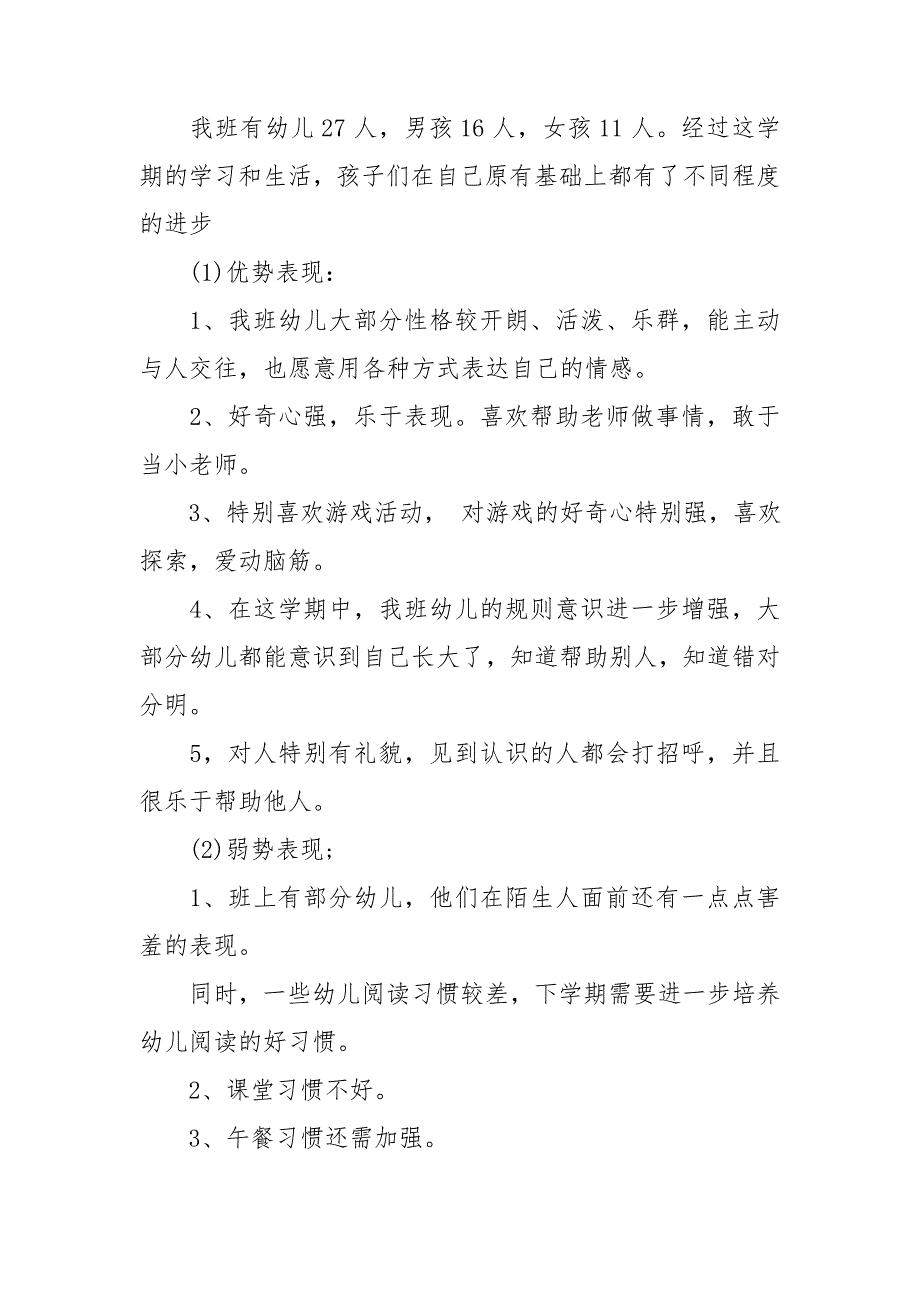 我班有幼儿 27 人，男孩 16 人，女孩 11 人。经过这学
期的学习和生活，孩子们在自己原有基础上都有了不同程度
的进步
(1)优势表现：
1、我班幼儿大部分性格较开朗、活泼、乐群，能主动
与人交往，也愿意用各种方式表达自己的情感。
2、好奇心强，乐于表现。喜欢帮助老师做事情，敢于
当小老师。
3、特别喜欢游戏活动， 对游戏的好奇心特别强，喜欢
探索，爱动脑筋。
4、在这学期中，我班幼儿的规则意识进一步增强，大
部分幼儿都能意识到自己长大了，知道帮助别人，知道错对
分明。
5，对人特别有礼貌，见到认识的人都会打招呼，并且
很乐于帮助他人。
(2)弱势表现;
1、班上有部分幼儿，他们在陌生人面前还有一点点害
羞的表现。
同时，一些幼儿阅读习惯较差，下学期需要进一步培养
幼儿阅读的好习惯。
2、课堂习惯不好。
3、午餐习惯还需加强。